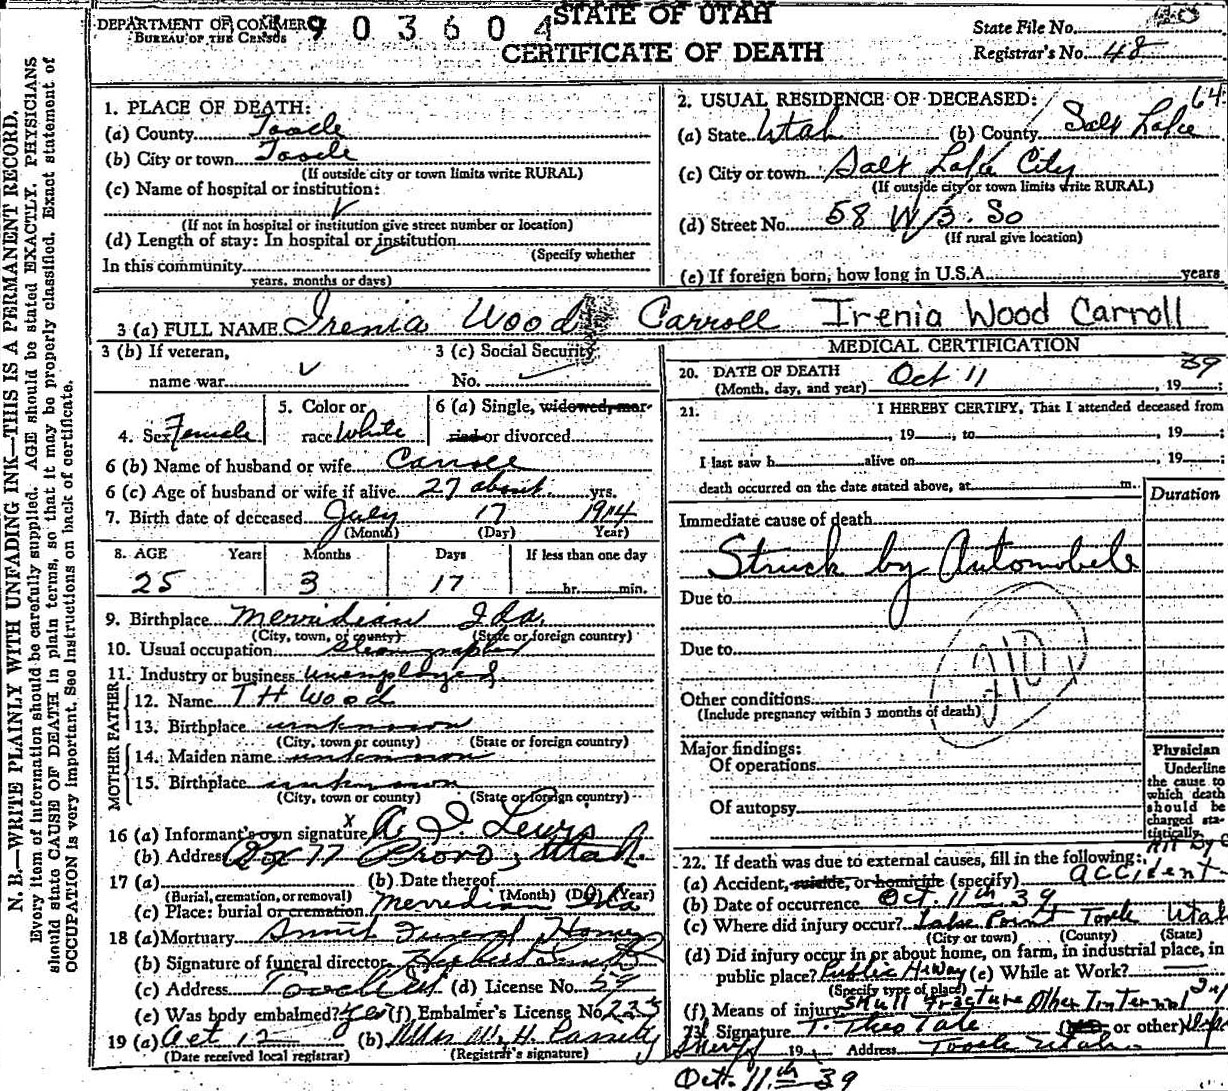 STATE OF UTAH
CERTIFICATE OF DEATH
DEPARTMENT OF COMMER
BUREAU OF THE CENSUS
9 0 3 6 0 4
State File No.
Registrar's No. 48
N. B.—WRITE PLAINLY WITH UNFADING INK—THIS IS A PERMANENT RECORD.
Every item of information should be carefully supplied. AGE should be stated EXACTLY. PHYSICIANS
should state CAUSE OF DEATH in plain terms, so that it may be properly classified. Exact statement of
OCCUPATION is very important. See instructions on back of certificate.
1. PLACE OF DEATH:
(a) County Tooele
(b) City or town Tooele
(If outside city or town limits write RURAL)
(c) Name of hospital or institution:
(If not in hospital or institution give street number or location)
(d) Length of stay: In hospital or institution
(Specify whether
In this community
years, months or days)
2. USUAL RESIDENCE OF DECEASED: 64
(a) State Utah (b) County Salt Lake
(c) City or town Salt Lake City
(If outside city or town limits write RURAL)
(d) Street No. 58 W 3 So
(If rural give location)
(e) If foreign born, how long in U.S.A. years
3 (a) FULL NAME Irenia Wood Carroll Irenia Wood Carroll
3 (b) If veteran,
name war
3 (c) Social Security
No.
4. Sex Female
5. Color or
race White
6 (a) Single, widowed, mar-
ried or divorced
6 (b) Name of husband or wife Carroll
6 (c) Age of husband or wife if alive 27 about yrs.
7. Birth date of deceased July 17 1914
(Month) (Day) Year)
8. AGE Years Months Days If less than one day
25 3 17 hr. min.
9. Birthplace Merridian Ida.
(City, town, or county) (State or foreign country)
10. Usual occupation Stenographer
11. Industry or business unemployed
FATHER
12. Name T H Wood
13. Birthplace unknown
(City, town or county) (State or foreign country)
MOTHER
14. Maiden name unknown
15. Birthplace unknown
(City, town or county) (State or foreign country)
16 (a) Informant's own signature x A. J. Lewis
(b) Address Box 17 Provo, Utah.
17 (a) (b) Date thereof
(Burial, cremation, or removal) (Month) (Day) (Year)
(c) Place: burial or cremation Merridian Ida
18 (a) Mortuary Funeral Home
(b) Signature of funeral director
(c) Address Tooele Ut (d) License No. 59
(e) Was body embalmed? yes (f) Embalmer's License No. 235
19 (a) Oct 12 (b) Mrs W. H. Cassity
(Date received local registrar) (Registrar's signature)
MEDICAL CERTIFICATION
20. DATE OF DEATH
(Month, day, and year) Oct 11, 1939:
21. I HEREBY CERTIFY, That I attended deceased from
, 19 , to , 19 :
I last saw h alive on , 19 :
death occurred on the date stated above, at m.
Duration
Immediate cause of death
Struck by Automobile
Due to
Due to
210
Other conditions
(Include pregnancy within 3 months of death)
Major findings:
Of operations
Of autopsy
Physician
Underline
the cause to
which death
should be
charged sta-
tistically.
22. If death was due to external causes, fill in the following:
(a) Accident, suicide, or homicide (specify) accident
(b) Date of occurrence Oct. 11th 39
(c) Where did injury occur? Lake Point Tooele Utah
(City or town) (County) (State)
(d) Did injury occur in or about home, on farm, in industrial place, in
public place? Public HiWay (e) While at Work?
(Specify type of place)
(f) Means of injury Skull Fracture Other Internal Inj
23. Signature T. Theo Tate or other)
19 Address Tooele Utah
Oct. 11th 39